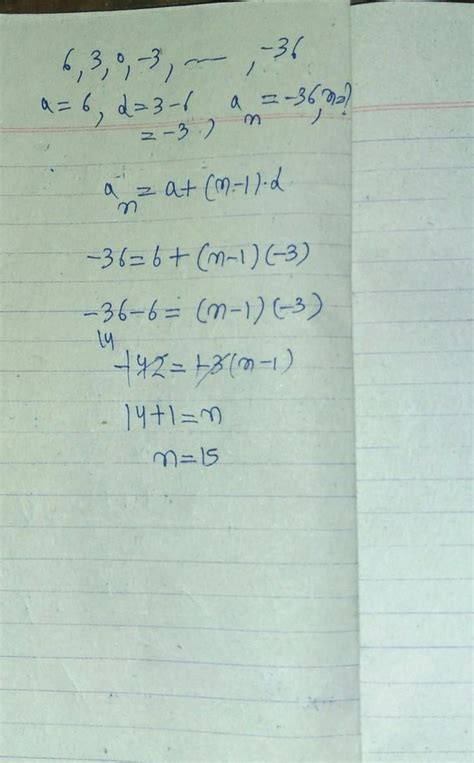 6, 3, 0, -3, ----- , -36
a = 6, d = 3-6 aₙ = -36, n = ?
= -3,
aₙ = a + (n-1)·d
-36 = 6 + (n-1) (-3)
-36-6 = (n-1) (-3)
14
+42 = +3 (n-1)
14+1 = n
n = 15